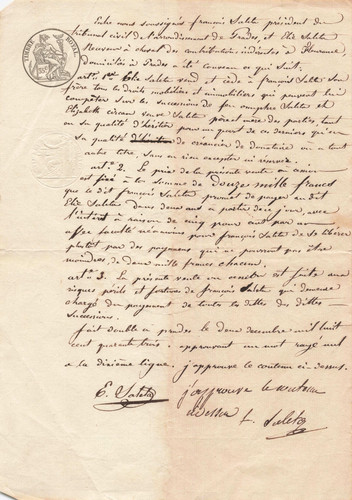 TIMBRE ROYAL
Entre nous soussignés françois Saleta président du
tribunal civil de l'arrondissement de Prades, et Elie Saleta
Receveur à cheval des contributions indirectes à
domiciliés à Prades a été convenu ce qui suit,
art. 1er Elie Saleta vend et cède à françois Saleta son
frère tous les droits mobiliers et immobiliers qui peuvent lui
compéter sur les successions de feu Saleta et
Elizabeth veuve Saleta père et mère des parties, tant
en sa qualité d'héritier pour un quart de ces derniers qu'en
sa qualité d'héritier de créancier de donataire ou a tout
autre titre, sans en rien excepter ni réserver.
art. 2. Le prix de la présente vente ou cession
est fixé à la somme de douze mille francs
que le dit françois Saleta promet de payer au dit
Elie Saleta dans deux ans à partir de ce jour, avec
l'intérêt à raison de cinq pour cent par année
avec faculté néanmoins pour françois Saleta de se libérer
plutôt par des payemens qui ne pourront pas être
moindres, de deux mille francs chacun.
art. 3. La présente vente ou cession est faite aux
risques périls et fortunes de françois Saleta qui demeure
chargé du payement de toutes les dettes des dites
successions.
fait double à prades le deux décembre mil huit
cent quarante trois. approuvant un mot rayé nul
a la dixième ligne. j'approuve le contenu ci-dessus.
E. Saleta
j'approuve le contenu
ci dessus f. Saleta